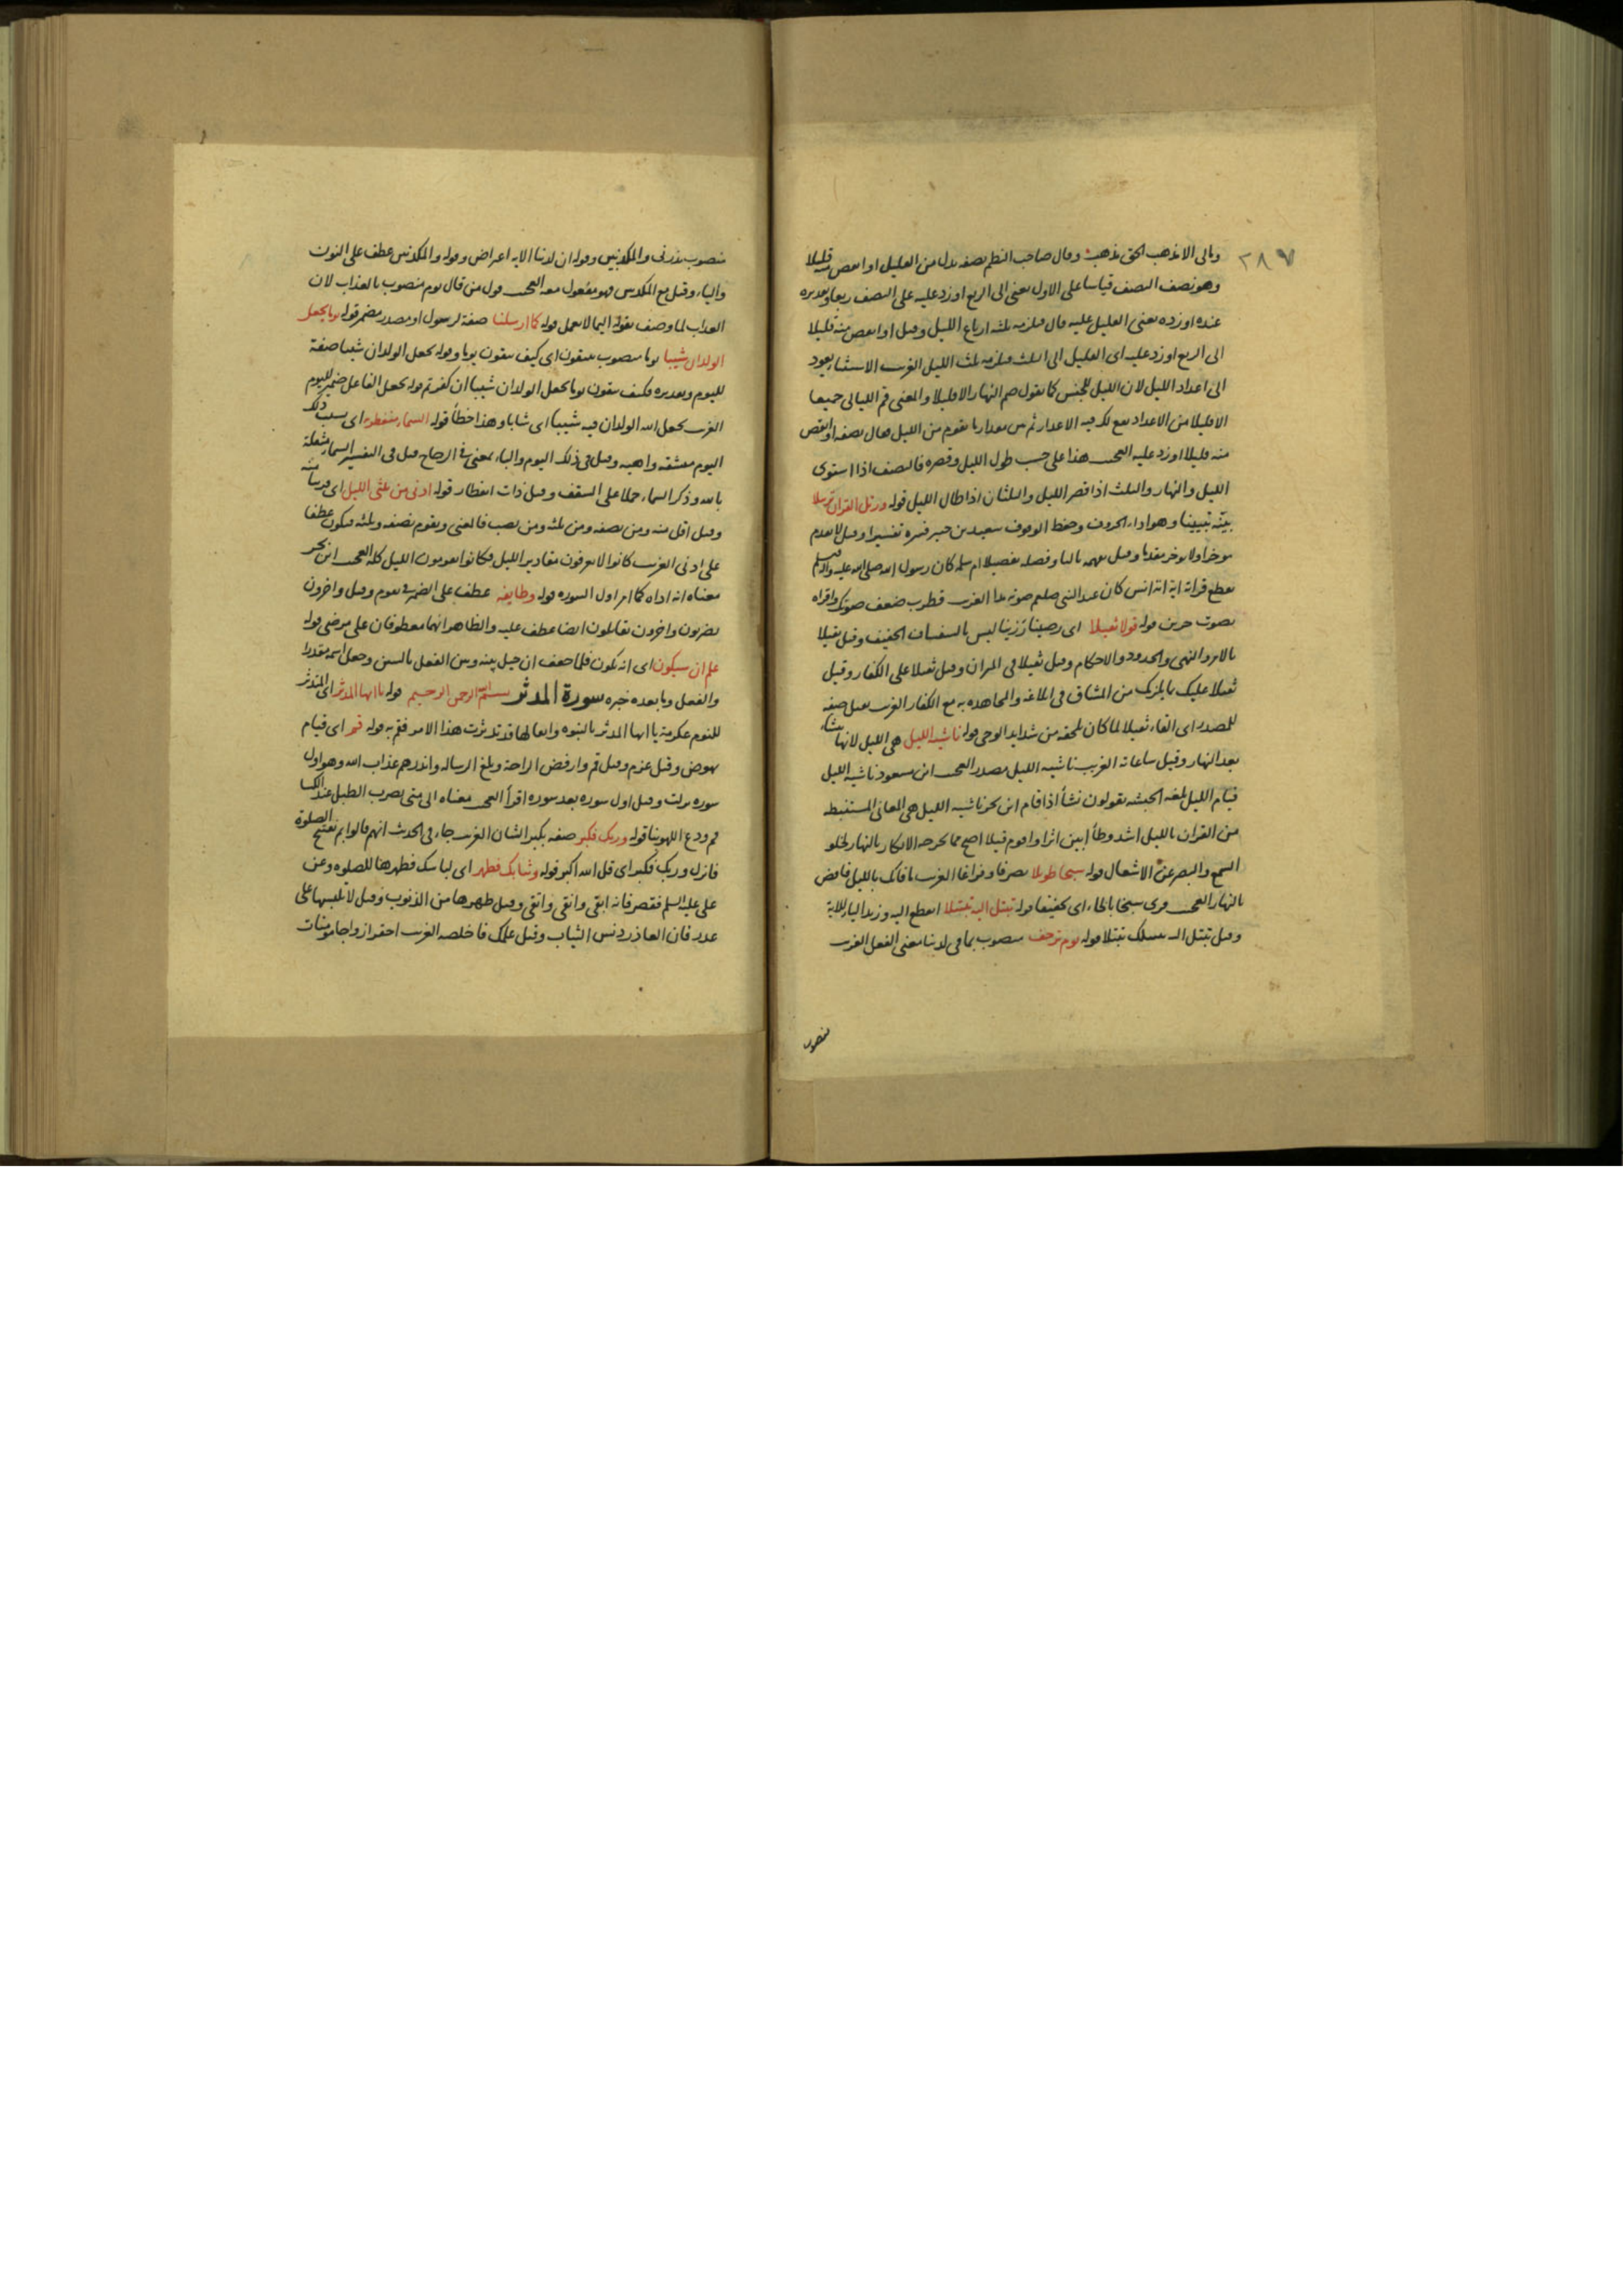 ٢٨٧
ومالى الا مذهب الحق مذهب وقال صاحب النظم نصفه بدل من القليل او انقص منه قليلا
وهو نصف النصف قياسا على الاول يعنى الى الربع او زد عليه على النصف ربعا وتقديره
عنده او زده يعنى القليل عليه قال فيلزمه ثلثه ارباع الليل وقيل او انقص منه قليلا
الى الربع او زد عليه اى القليل الى الثلث فيلزمه ثلث الليل الغريب الاستثناء يعود
الى اعداد الليل لان الليل للجنس كما تقول صم النهار الا قليلا والمعنى قم الليالى جميعا
الا قليلا من الاعداد يقع لك فيه الاعذار ثم بين مقدار ما يقوم من الليل فقال نصفه او انقص
منه قليلا او زد عليه العجب هذا على حسب طول الليل وقصره فالنصف اذا استوى
الليل والنهار والثلث اذا قصر الليل والثلثان اذا طال الليل قوله ورتل القران ترتيلا
بينه تبيينا وهو اداء الحروف وحفظ الوقوف سعيد بن جبير فسره تفسيرا وقيل لا تقدم
موخرا ولا توخر مقدما وقيل وفصله تفصيلا ام سلمه كان رسول الله صلى الله عليه واله وسلم
يقطع قراته اية اية انس كان عبد النبى صلعم صوته مدا الغريب قطرب ضعف صوتك واقراه
بصوت حزين قوله قولا ثقيلا اى رصينا رزينا ليس بالسفساف الخفيف وقيل ثقيلا
بالامر والنهى والحدود والاحكام وقيل ثقيلا فى الميزان وقيل ثقيلا على الكفار وقيل
ثقيلا عليك ما يلزمك من المشاق فى ابلاغه والمجاهده به مع الكفار الغريب ثقيل صفه
للمصدر اى القاء ثقيلا لما كان يلحقه من شدايد الوحى قوله ناشئه الليل هى الليل لانها تنشاء
بعد النهار وقيل ساعاته الغريب ناشيه الليل مصدر العجب ابن مسعود ناشيه الليل
قيام الليل بلغه الحبشه يقولون نشأ اذا قام ابن بحر ناشيه الليل هى المعانى المستنبطه
من القران بالليل اشد وطأ ابين اثرا واقوم قيلا اصح مما تخرجه الافكار بالنهار لخلو
السمع والبصر عن الاشتغال قوله سبحا طويلا تصرفا وفراغا الغريب ما فاتك بالليل فاقض
بالنهار العجب قرى سبخا بالخاء اى تخفيفا قوله تبتل اليه تبتيلا انقطع اليه وزيد الياء للاية
وقيل تبتل اليه نفسك تبتيلا قوله يوم ترجف منصوب بما فى لدينا معنى الفعل الغريب
منصوب
منصوب بذرنى والمكذبين وقوله ان لدينا الايه اعتراض وقوله والمكذبين عطف على النون
والياء وقيل مع المكذبين فهو مفعول معه العجب قول من قال يوم منصوب بالعذاب لان
العذاب لما وصف بقوله اليما لا يعمل قوله كما ارسلنا صفة لرسول او مصدر مضمر قوله يوما يجعل
الولدان شيبا يوما منصوب بتتقون اى كيف تتقون يوما وقوله يجعل الولدان شيبا صفة
لليوم وتقديره فكيف تتقون يوما يجعل الولدان شيبا ان كفرتم قوله يجعل الفاعل ضمير لليوم
الغريب يجعل الله الولدان فيه شيبا اى شابا وهذا خطأ قوله السماء منفطر به اى بسبب ذلك
اليوم منشقه واهيه وقيل فى ذلك اليوم والباء بمعنى فى الزجاج قيل فى التفسير السماء مثقلة
بالله وذكر السماء حملا على السقف وقيل ذات انفطار قوله ادنى من ثلثى الليل اى قريبا منه
وقيل اقل منه ومن نصفه ومن ثلثه ومن نصب فالمعنى ويقوم نصفه وثلثه فيكون عطفا
على ادنى الغريب كانوا لا يعرفون مقادير الليل فكانوا يقومون الليل كله العجب ابن بحر
معناه انه اداه كما امر اول السوره قوله وطايفه عطف على الضمير فى تقوم وقيل واخرون
يضربون واخرون يقاتلون ايضا عطف عليه والظاهر انهما معطوفان على مرضى قوله
علم ان سيكون اى انه يكون فلما خفف ان حيل بينه وبين الفعل بالسين وجعل اسمه مقدرا
والفعل وما بعده خبره سورة المدثر بسم الله الرحمن الرحيم قوله يا ايها المدثر اى المتدثر
للنوم عكرمة يا ايها المدثر بالنبوه واثقالها قد تدثرت هذا الامر فقم به قوله قم اى قيام
نهوض وقيل عزم وقيل قم وارفض الراحة وبلغ الرساله وانذرهم عذاب الله وهو اول
سوره نزلت وقيل اول سوره بعد سوره اقرأ العجب معناه الى متى تضرب الطبل عند الكسا
قم ودع الهوينا قوله وربك فكبر صفه بكبر الشان الغريب جاء فى الحديث انهم قالوا بم نفتتح الصلوة
فانزل وربك فكبر اى قل الله اكبر قوله وثيابك فطهر اى لباسك فطهرها للصلوه وعن
على عليه السلم فقصر فانه ابقى وانقى واتقى وقيل طهرها من الذنوب وقيل لا تلبسها على
عذر فان الغادر دنس الثياب وقيل عملك فاخلصه الغريب اختر ازواجا مومنات